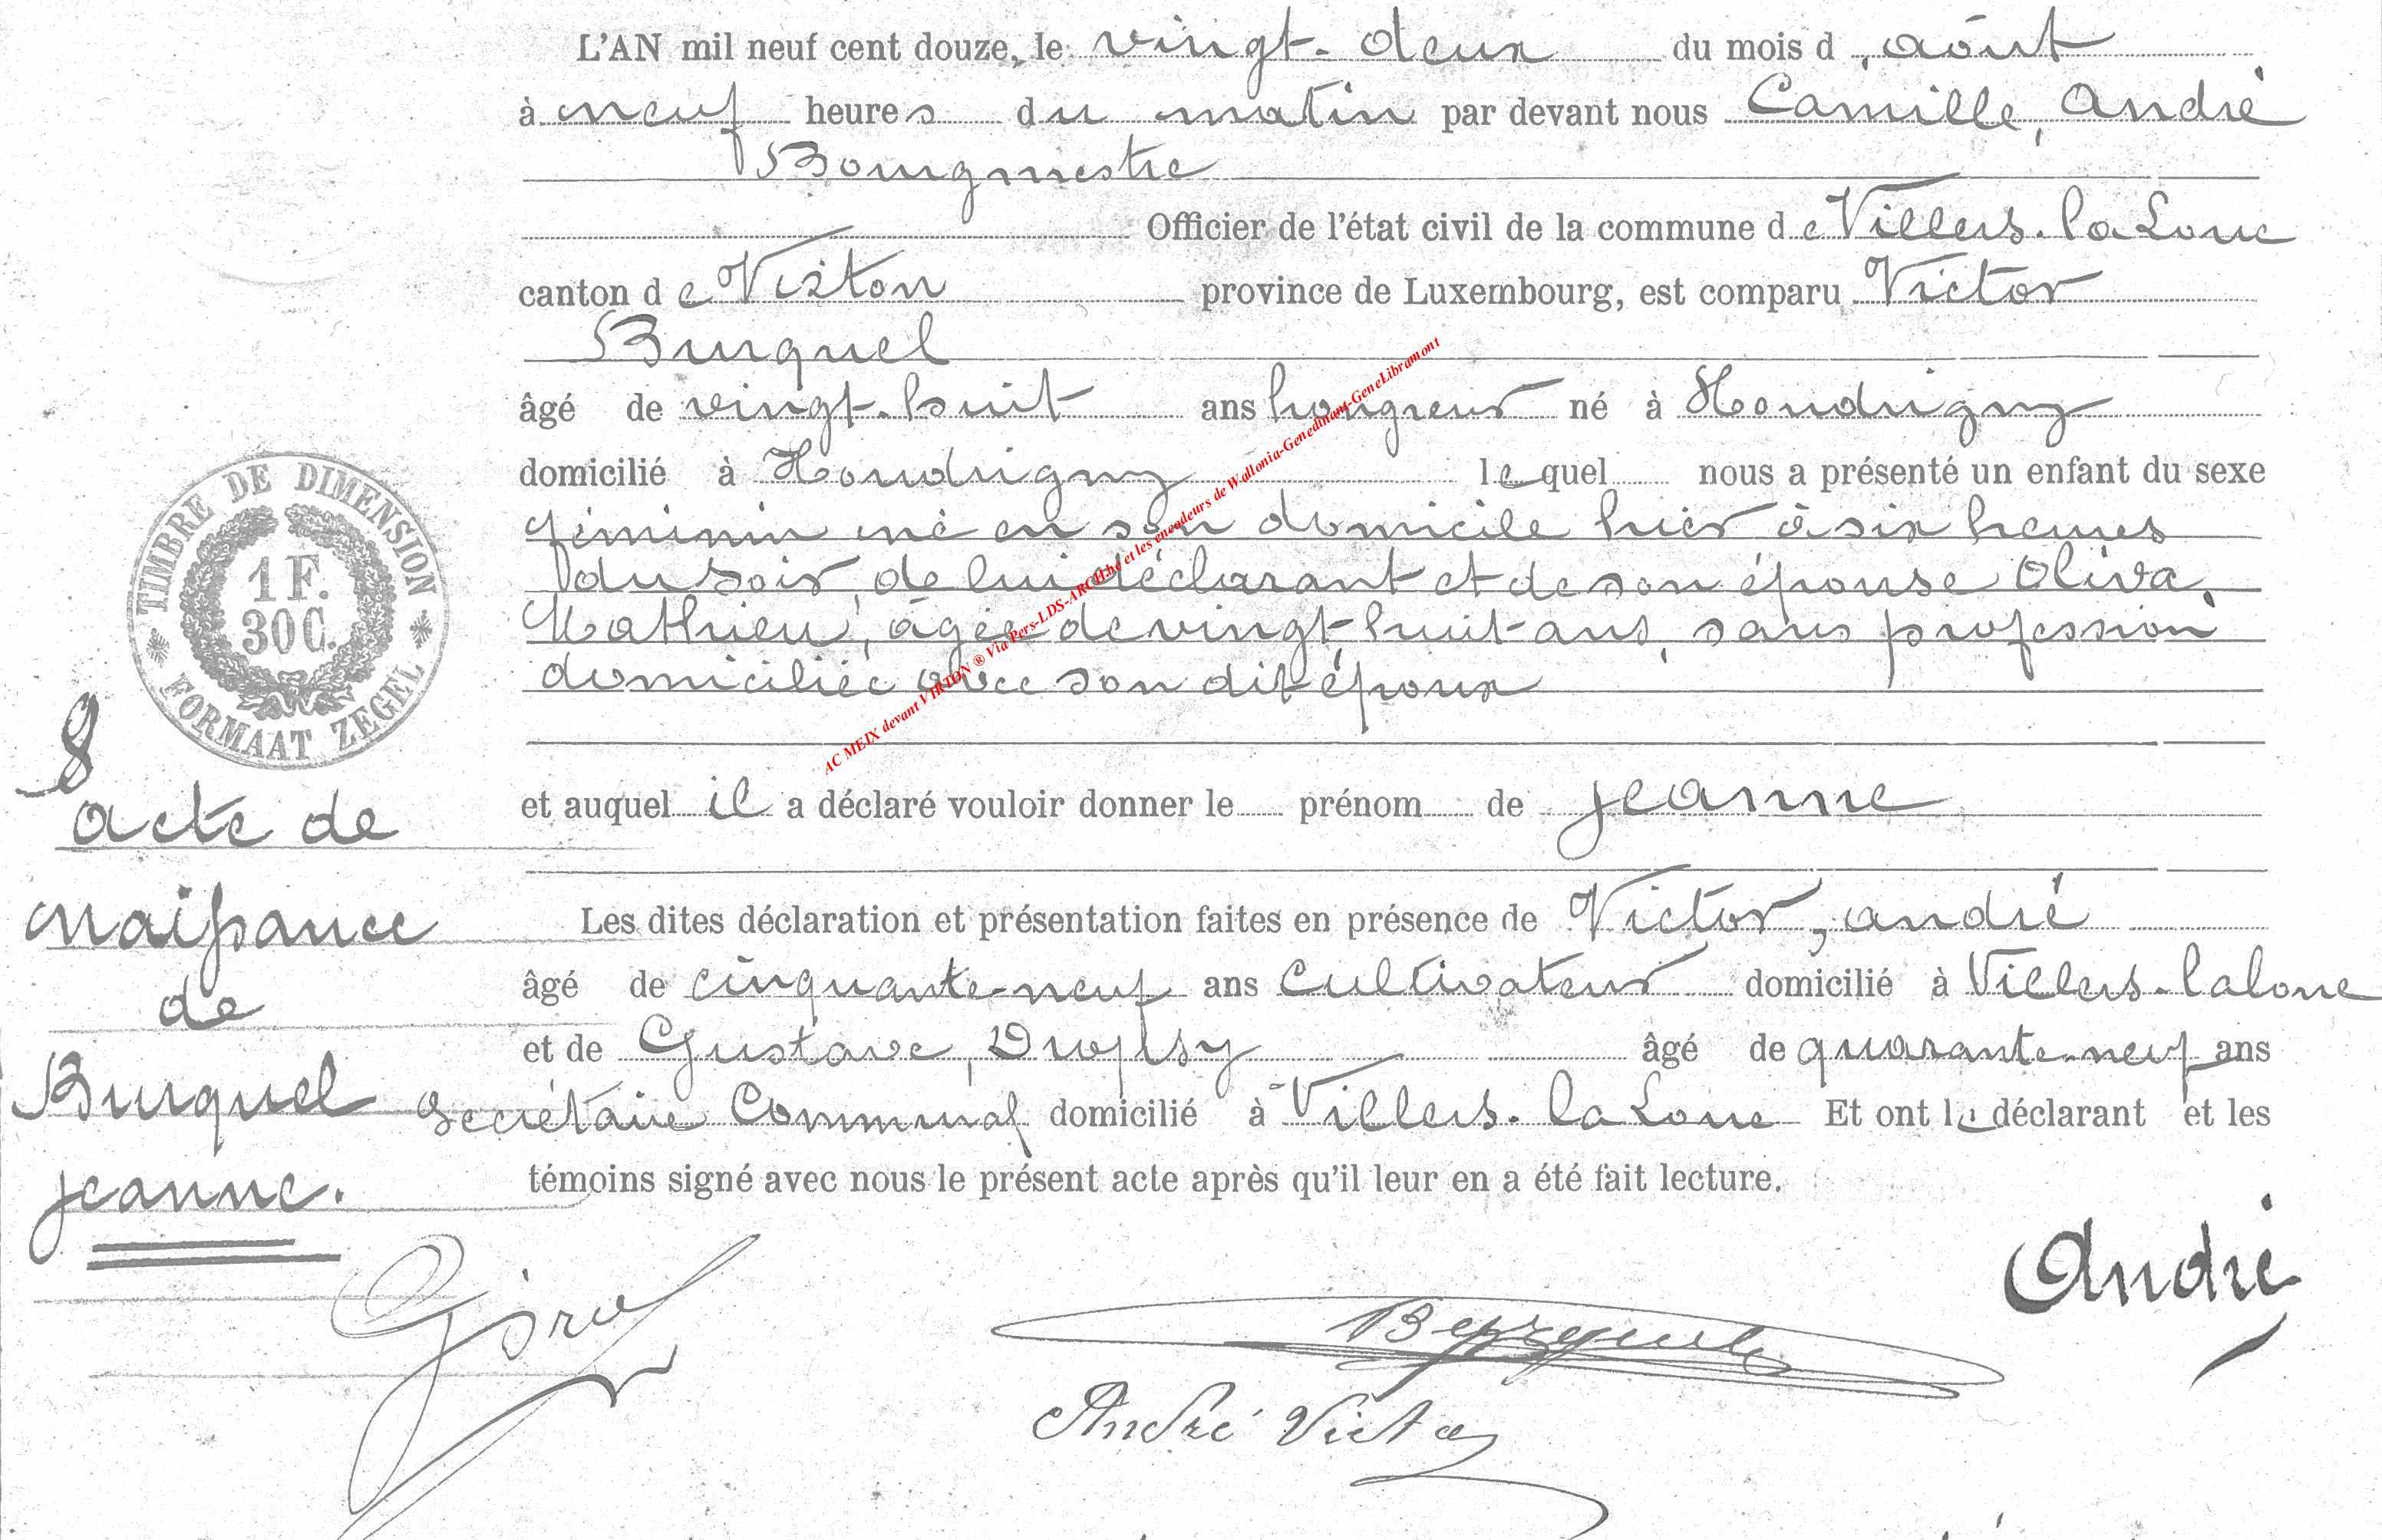 L'AN mil neuf cent douze, le vingt-deux du mois d'août
à neuf heures du matin par devant nous Camille, André
Bourgmestre
Officier de l'état civil de la commune de Villers-la Loue
canton de Virton province de Luxembourg, est comparu Victor
Burquel
âgé de vingt-huit ans hongreur né à Houdrigny
domicilié à Houdrigny lequel nous a présenté un enfant du sexe
féminin né en son domicile hier à six heures
du soir, de lui déclarant et de son épouse Oliva,
Mathieu, âgée de vingt-huit ans, sans profession
domiciliée avec son dit époux
et auquel il a déclaré vouloir donner le prénom de jeanne
Les dites déclaration et présentation faites en présence de Victor, andré
âgé de cinquante-neuf ans cultivateur domicilié à Villers-laloue
et de Gustave, Dropsy âgé de quarante-neuf ans
secrétaire Communal domicilié à Villers-la Loue Et ont le déclarant et les
témoins signé avec nous le présent acte après qu'il leur en a été fait lecture.
TIMBRE DE DIMENSION
1 F.
30C.
FORMAAT ZEGEL
8
acte de
naissance
de
Burquel
jeanne.
AC MEIX devant VIRTON ® Via Pers-LDS-ARCH.be et les encodeurs de Wallonia-Genedinant-GeneLibramont
André
Burquel
André Victor